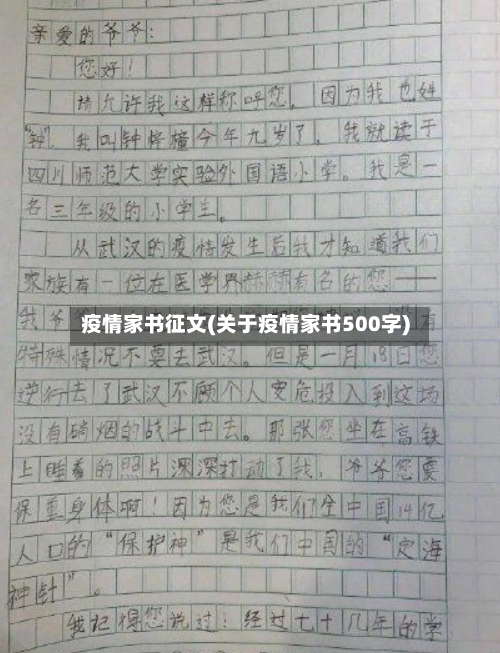 亲爱的爷爷：
您好！
请允许我这样称呼您，因为我也姓
“钟”，我叫钟梓橦今年九岁了，我就读于
四川师范大学实验外国语小学。我是一
名三年级的小学生。
从武汉的疫情发生后我才知道我们
家族有一位在医学界赫赫有名的您——
我爷爷
疫情家书征文(关于疫情家书500字)
有
特殊情况不要去武汉。但是一月18日您
逆行去了武汉不顾个人安危投入到这场
没有硝烟的战斗中去。那张您坐在高铁
上睡着的照片深深打动了我，爷爷您要
保重身体啊！因为您是我们全中国14亿
人口的“保护神”是我们中国的“定海
神针”。
我记得您说过：经过七十几年的学